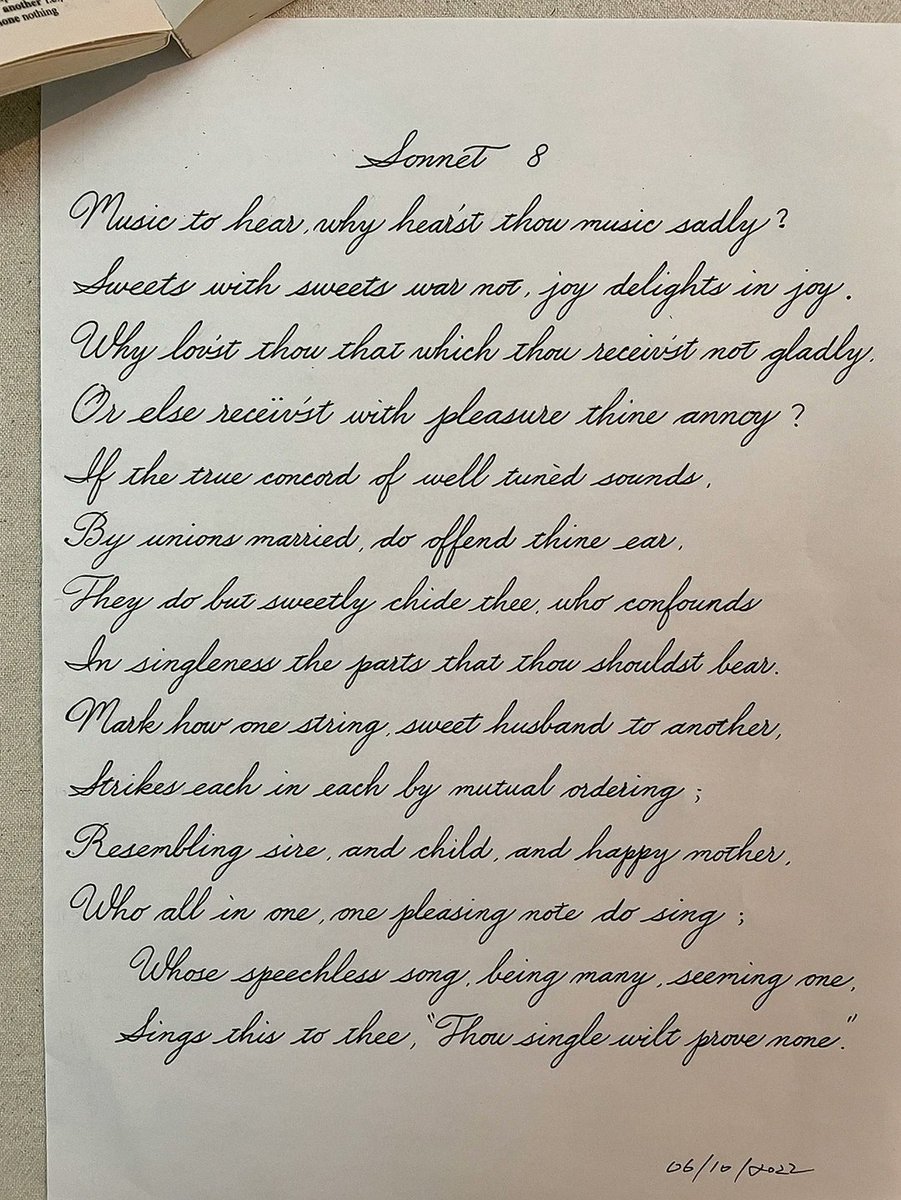 another i.e.,
none nothing
Sonnet 8
Music to hear, why hear'st thou music sadly?
Sweets with sweets war not, joy delights in joy.
Why lov'st thou that which thou receiv'st not gladly,
Or else receiv'st with pleasure thine annoy?
If the true concord of well tunèd sounds,
By unions married, do offend thine ear,
They do but sweetly chide thee, who confounds
In singleness the parts that thou shouldst bear.
Mark how one string, sweet husband to another,
Strikes each in each by mutual ordering;
Resembling sire, and child, and happy mother,
Who all in one, one pleasing note do sing;
Whose speechless song, being many, seeming one,
Sings this to thee, "Thou single wilt prove none".
06/10/2022